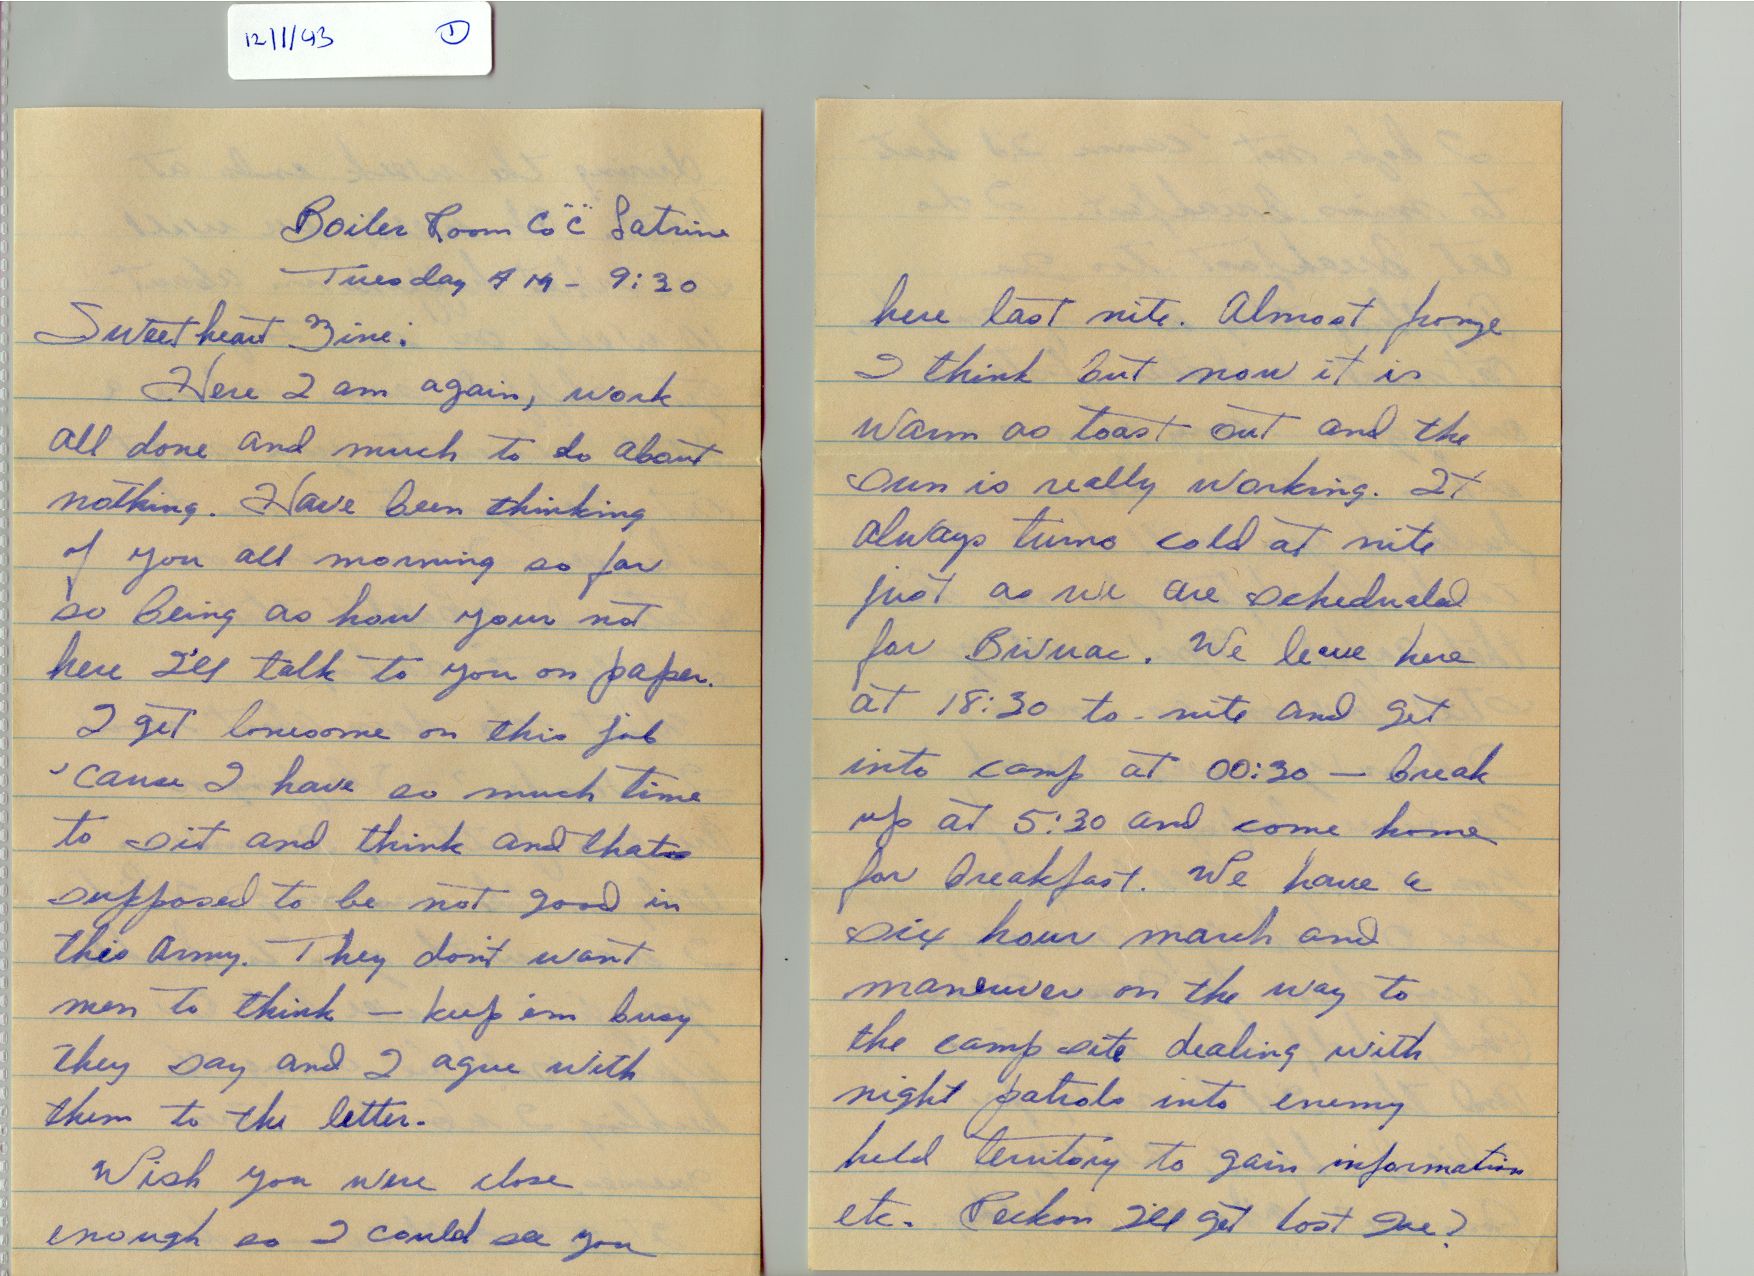 12/1/43 1
Boiler Room Co "C" Latrine
Tuesday AM - 9:30
Sweetheart Mine:
Here I am again, work
all done and much to do about
nothing. Have been thinking
of you all morning so far
so being as how your not
here I'll talk to you on paper.
I get lonesome on this job
'cause I have so much time
to sit and think and thats
supposed to be not good in
this Army. They don't want
men to think - keep 'em busy
they say and I agree with
them to the letter.
Wish you were close
enough so I could see you
here last nite. Almost froze
I think but now it is
warm as toast out and the
sun is really working. It
always turns cold at nite
just as we are scheduled
for Bivuac. We leave here
at 18:30 to-nite and get
into camp at 00:30 - break
up at 5:30 and come home
for breakfast. We have a
six hour march and
maneuver on the way to
the camp site dealing with
night patrols into enemy
held territory to gain information
etc. Reckon I'll get lost